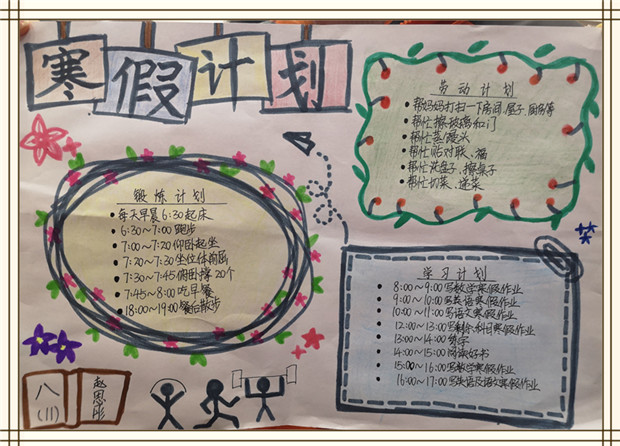 寒假计划
锻炼计划
每天早晨6:30起床
6:30~7:00 跑步
7:00~7:20仰卧起坐
7:20~7:30坐位体前屈
7:30~7:45俯卧撑20个
7:45~8:00吃早餐
18:00~19:00餐后散步
劳动计划
帮妈妈打扫一下房间、屋子、厨房等
帮忙擦玻璃和门
帮忙蒸馒头
帮忙贴对联、福
帮忙洗盘子、擦桌子
帮忙切菜、递菜
学习计划
8:00~9:00写数学寒假作业
9:00~10:00写英语寒假作业
10:00~11:00写语文寒假作业
12:00~13:00写剩余科目寒假作业
13:00~14:00练字
14:00~15:00阅读好书
15:00~16:00写数学寒假作业
16:00~17:00写英语及语文寒假作业
八
(11)
赵思彤